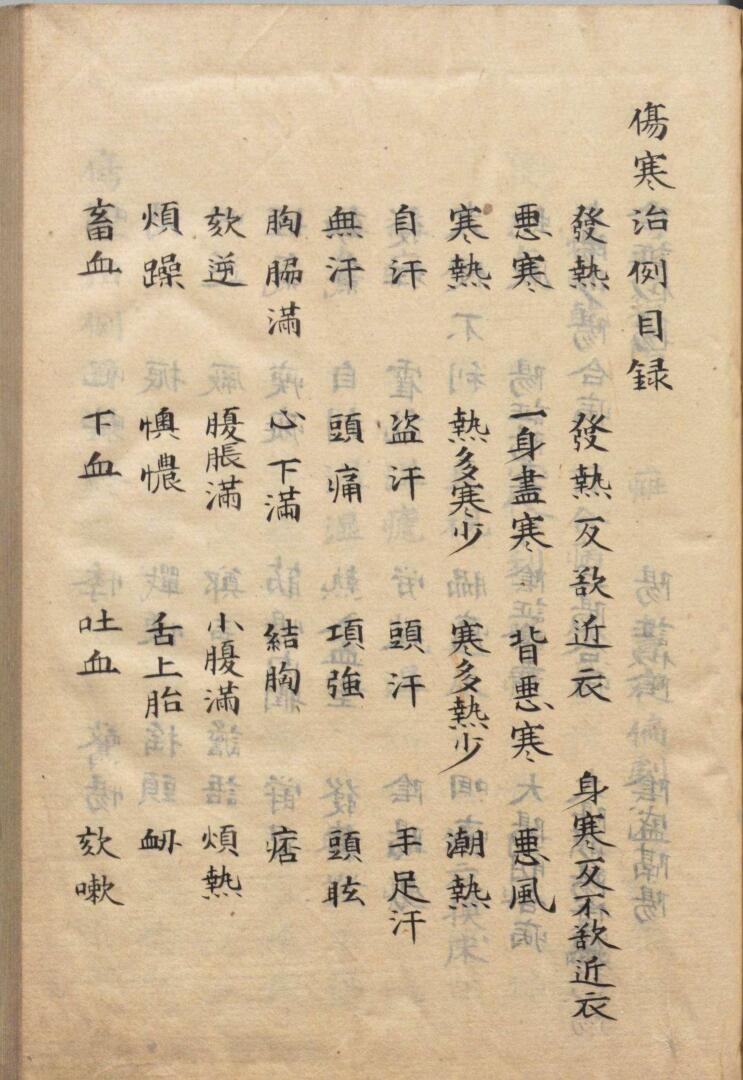 傷寒治例目録
發熱 發熱反欲近衣 身寒反不欲近衣
惡寒 一身盡寒 背惡寒 惡風
寒熱 熱多寒少 寒多熱少 潮熱
自汗 盗汗 頭汗 手足汗
無汗 頭痛 項強 頭眩
胸脇滿 心下滿 結胸 痞
欬逆 腹脹滿 小腹滿 煩熱
煩躁 懊憹 舌上胎 衂
畜血 下血 吐血 欬嗽